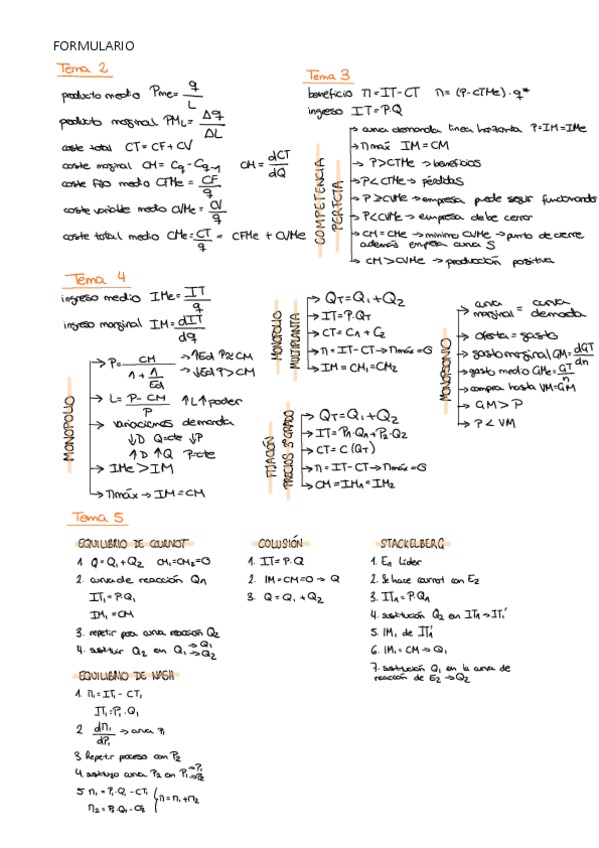 FORMULARIO
Tema 2
producto medio Pme = q / L
producto marginal PM_L = Δq / ΔL
coste total CT = CF + CV
coste marginal CM = Cq - Cq-1 CM = dCT / dQ
coste fijo medio CFMe = CF / q
coste variable medio CVMe = CV / q
coste total medio CMe = CT / q = CFMe + CVMe
Tema 3
beneficio Π = IT - CT Π = (P - CTMe) · q*
ingreso IT = P·Q
COMPETENCIA PERFECTA
→ curva demanda línea horizontal P = IM = IMe
→ Π máx IM = CM
→ P > CTMe → beneficios
→ P < CTMe → pérdidas
→ P ≥ CVMe → empresa puede seguir funcionando
→ P < CVMe → empresa debe cerrar
→ CM = CMe → mínimo CVMe → punto de cierre
además empieza curva S
→ CM > CVMe → producción positiva
Tema 4
ingreso medio IMe = IT / q
ingreso marginal IM = dIT / dq
MONOPOLIO
→ P = CM / (1 + 1/Ed) → ↑Ed P≈CM
→ ↓Ed P > CM
→ L = (P - CM) / P ↑L ↑poder
→ variaciones demanda
↓D Q=cte ↓P
↑D ↑Q P=cte
→ IMe > IM
→ Πmáx → IM = CM
MONOPOLIO MULTIPLANTA
→ QT = Q1 + Q2
→ IT = P·QT
→ CT = C1 + C2
→ Π = IT - CT → Πmáx = 0
→ IM = CM1 = CM2
FIJACIÓN PRECIOS 3ºGRADO
→ QT = Q1 + Q2
→ IT = P1·Q1 + P2·Q2
→ CT = C(QT)
→ Π = IT - CT → Πmáx = 0
→ CM = IM1 = IM2
MONOPSONIO
→ curva marginal = curva demanda
→ oferta = gasto
→ gasto marginal GM = dGT / dn
→ gasto medio GMe = GT / n
→ compra hasta VM = GM
→ GM > P
→ P < VM
Tema 5
EQUILIBRIO DE COURNOT
1. Q = Q1 + Q2 CM1 = CM2 = 0
2. curva de reacción Q1
IT1 = P·Q1
IM1 = CM
3. repetir para curva reacción Q2
4. sustituir Q2 en Q1 → Q1
→ Q2
COLUSIÓN
1. IT = P·Q
2. IM = CM = 0 → Q
3. Q = Q1 + Q2
STACKELBERG
1. E1 líder
2. Se hace cournot con E2
3. IT1 = P·Q1
4. sustitución Q2 en IT1 → IT1'
5. IM1 de IT1'
6. IM1 = CM → Q1
7. sustitución Q1 en la curva de
reacción de E2 → Q2
EQUILIBRIO DE NASH
1. Π1 = IT1 - CT1
IT1 = P1·Q1
2. dΠ1 / dP1 → curva P1
3. Repetir proceso con P2
4. sustituyo curva P2 en P1 → P1
→ P2
5. Π1 = P1·Q1 - CT1
Π2 = P2·Q2 - C2 Π = Π1 + Π2